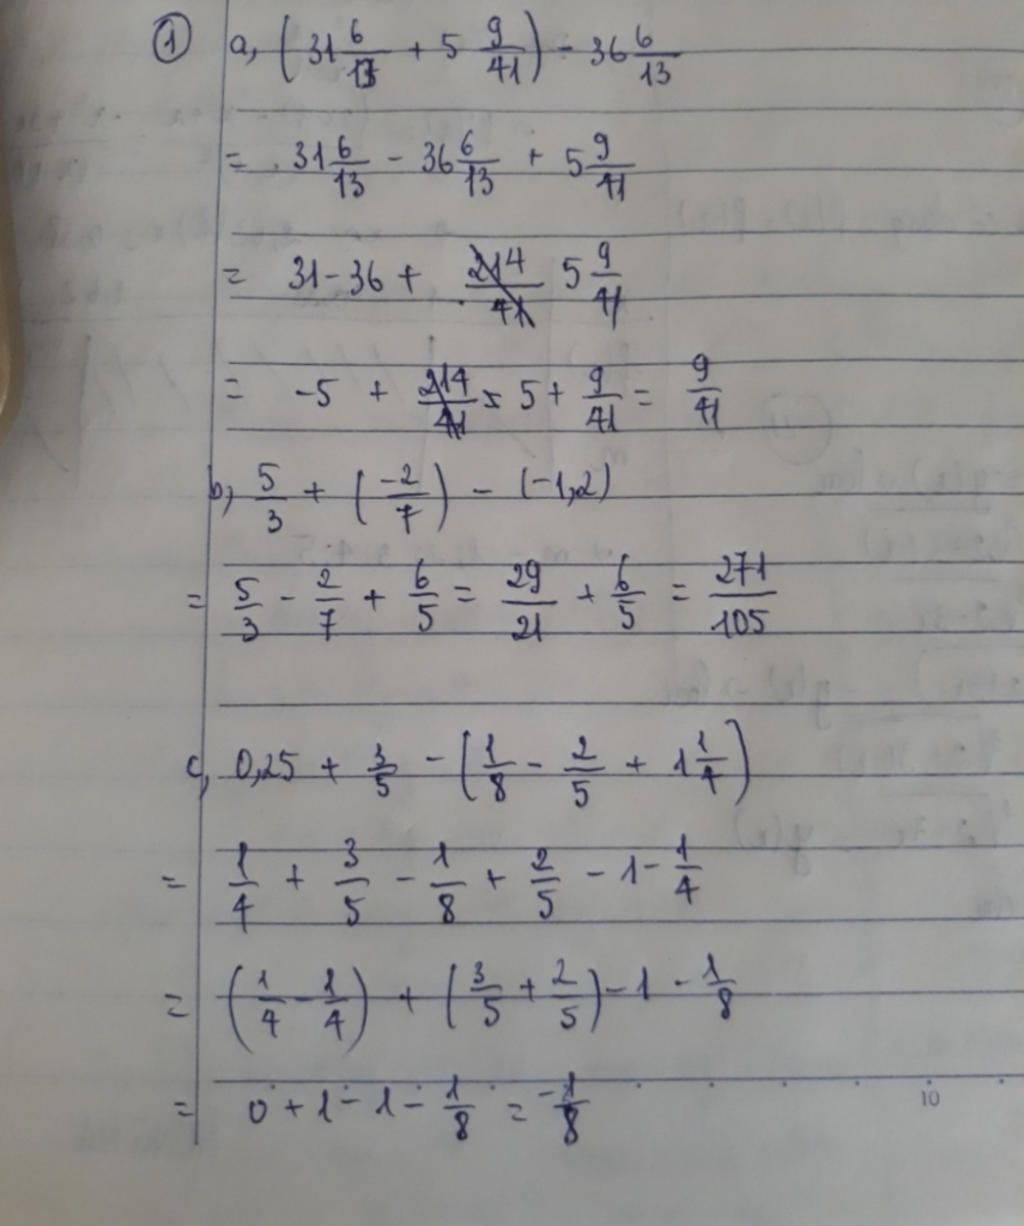 ① a, (31 6/13 + 5 9/41) - 36 6/13
= 31 6/13 - 36 6/13 + 5 9/41
= 31 - 36 + 214/41 5 9/41
= -5 + 214/41 = 5 + 9/41 = 9/41
b, 5/3 + (-2/7) - (-1,2)
= 5/3 - 2/7 + 6/5 = 29/21 + 6/5 = 271/105
c, 0,25 + 3/5 - (1/8 - 2/5 + 1 1/4)
= 1/4 + 3/5 - 1/8 + 2/5 - 1 - 1/4
= (1/4 - 1/4) + (3/5 + 2/5) - 1 - 1/8
= 0 + 1 - 1 - 1/8 = -1/8
10